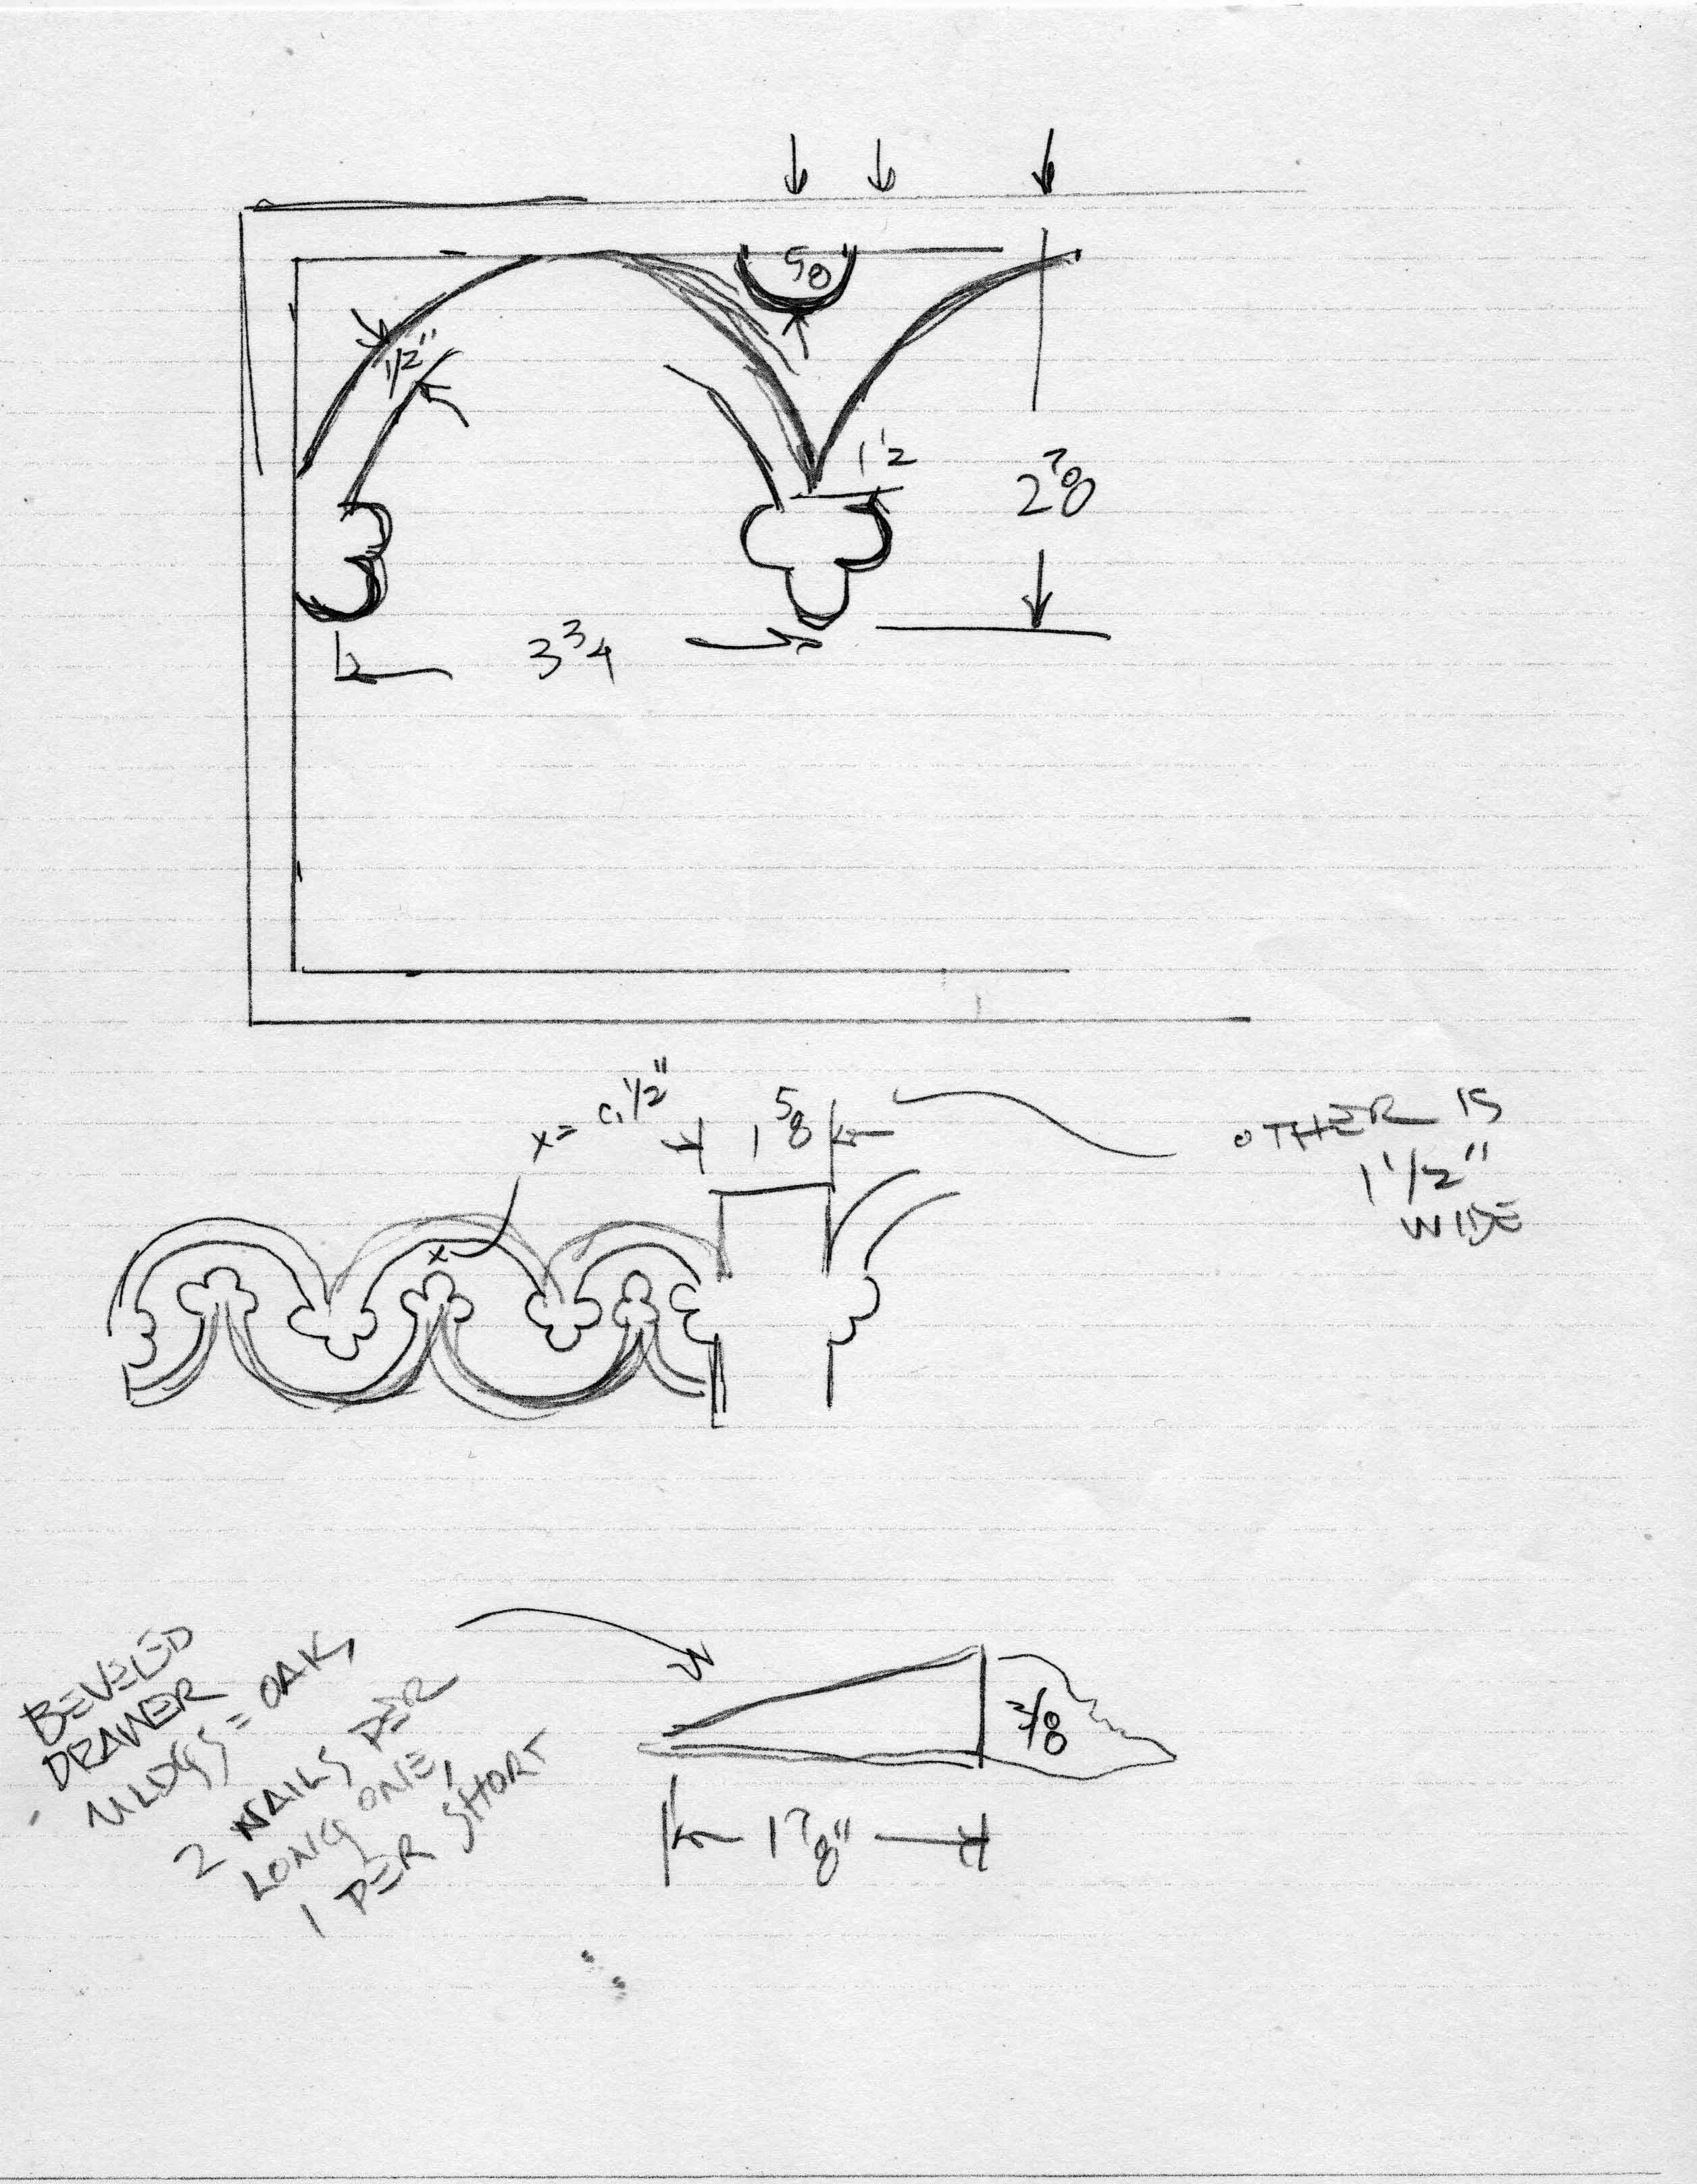 5/8
1/2"
1 1/2
2 7/8
3 3/4
x = c. 1/2"
1 5/8
OTHER IS
1 1/2"
WIDE
x
BEVELED
DRAWER
MLDGS = OAK,
2 NAILS PER
LONG ONE,
1 PER SHORT
1 7/8"